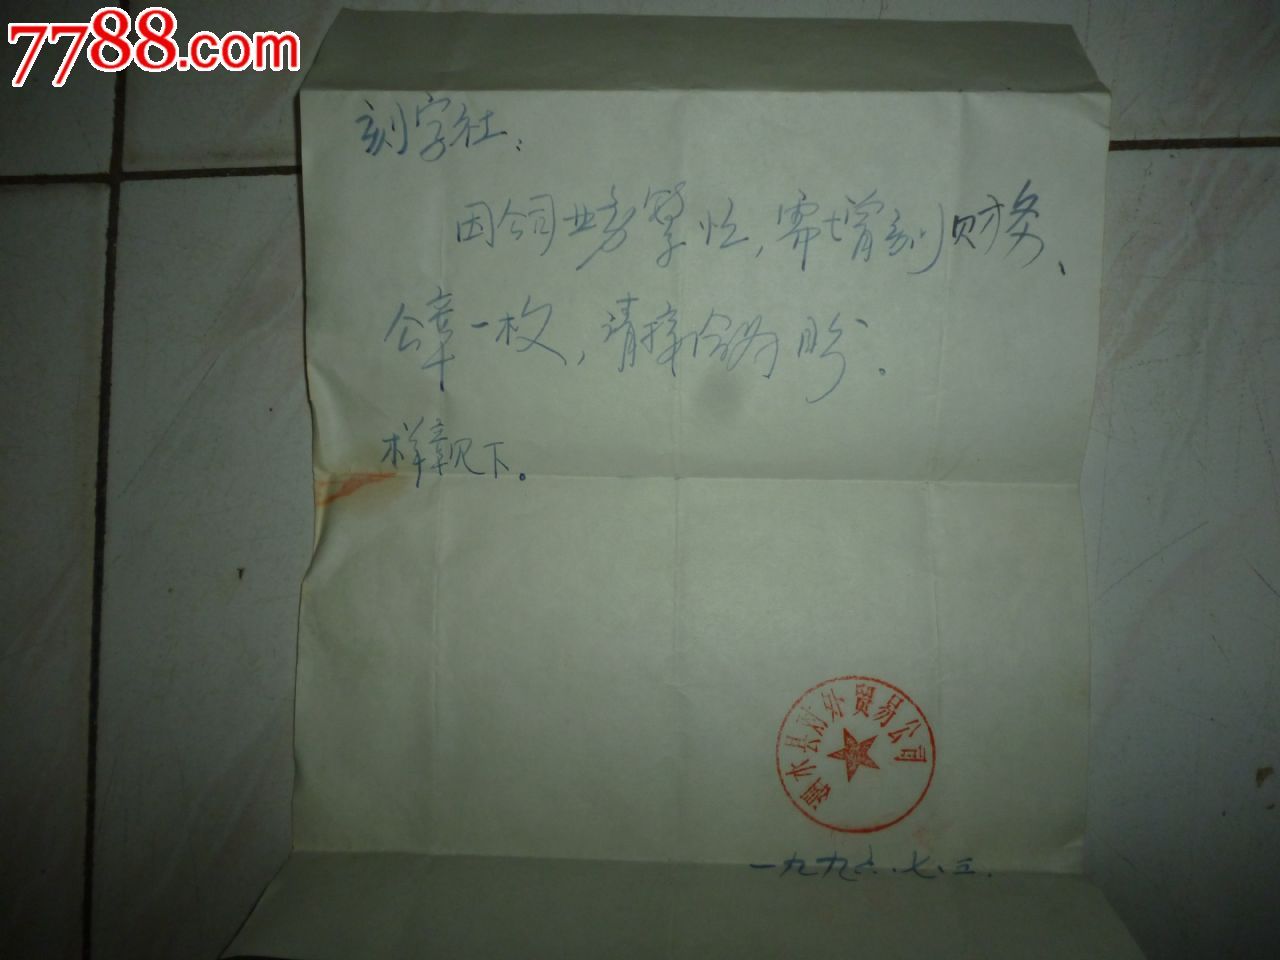 7788.com
刻字社:
因公司业务繁忙,需增刻财务、
公章一枚,请接洽为盼。
样章见下。
水县对外贸易公司
一九九六.七.三.